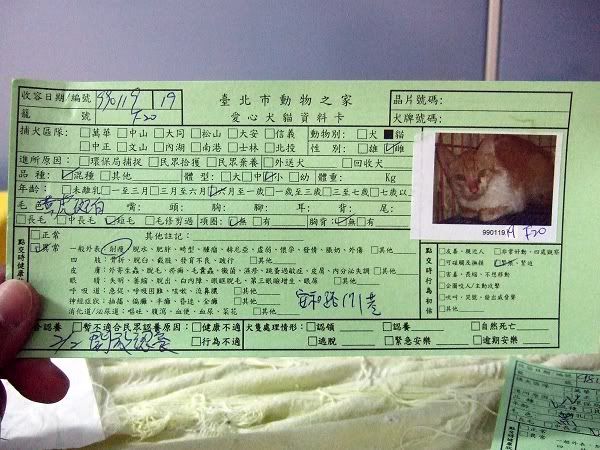 收容日期/編號 990119 19 臺北市動物之家 晶片號碼:
籠號 F20 愛心犬貓資料卡 犬牌號碼:
捕犬區隊: □萬華□中山□大同□松山□大安□信義 動物別: □犬■貓
□中正□文山□內湖□南港□士林□北投 性別: □雄☑雌
進所原因: □環保局捕捉□民眾拾獲□民眾棄養□外送犬□回收犬
品種: ☑混種□其他 體型: □大□中☑小□幼 體重: Kg
年齡: □未離乳□一至三月□三月至六月☑六月至一歲□一歲至三歲□三至七歲□七歲以上
毛色 黃虎斑白 嘴: 頭: 腳: 耳: 背: 尾:
□長毛□中長毛☑短毛□毛修剪過 項圈: ☑無□有 胸背: ☑無□有
990119 A F20
點交時健康狀
□正常 其他註記:
☑異常 一般外表/創傷、脫水、肥胖、畸型、腫瘤、赫尼亞、虛弱、懷孕、發情、脹奶、外傷 □其他
四肢: 骨折、脫臼、截肢、發育不良、跛行 □其他
皮膚: 外寄生蟲、脫毛、疥癬、毛囊蟲、黴菌、濕疹、跳蚤過敏症、皮屑、內分泌失調 □其他
眼睛: 失明、萎縮、脫出、白內障、眼瞼脫毛、第三眼瞼增生、眼屎 □其他
呼吸道: 急促、呼吸困難、咳嗽、流鼻膿 □其他
神經症狀: 抽搐、偏癱、半癱、昏迷、全癱 □其他
消化道/泌尿道: 嘔吐、腹瀉、血便、血尿、尿菜 □其他
安和路171巷
點交時行為初估
□友善、親近人 □非常好動、四處觀察
□可碰觸及撫摸 ☑緊張、緊迫
□害羞、畏縮、不想移動
□企圖咬人/主動攻擊
□吠叫、咒號、發出威脅聲
□其他
合認養 □暫不適合民眾認養原因: □健康不適 犬隻處理情形: □認領 □認養 □自然死亡
□行為不適 □逃脫 □緊急安樂 □逾期安樂
2/2 開放認養